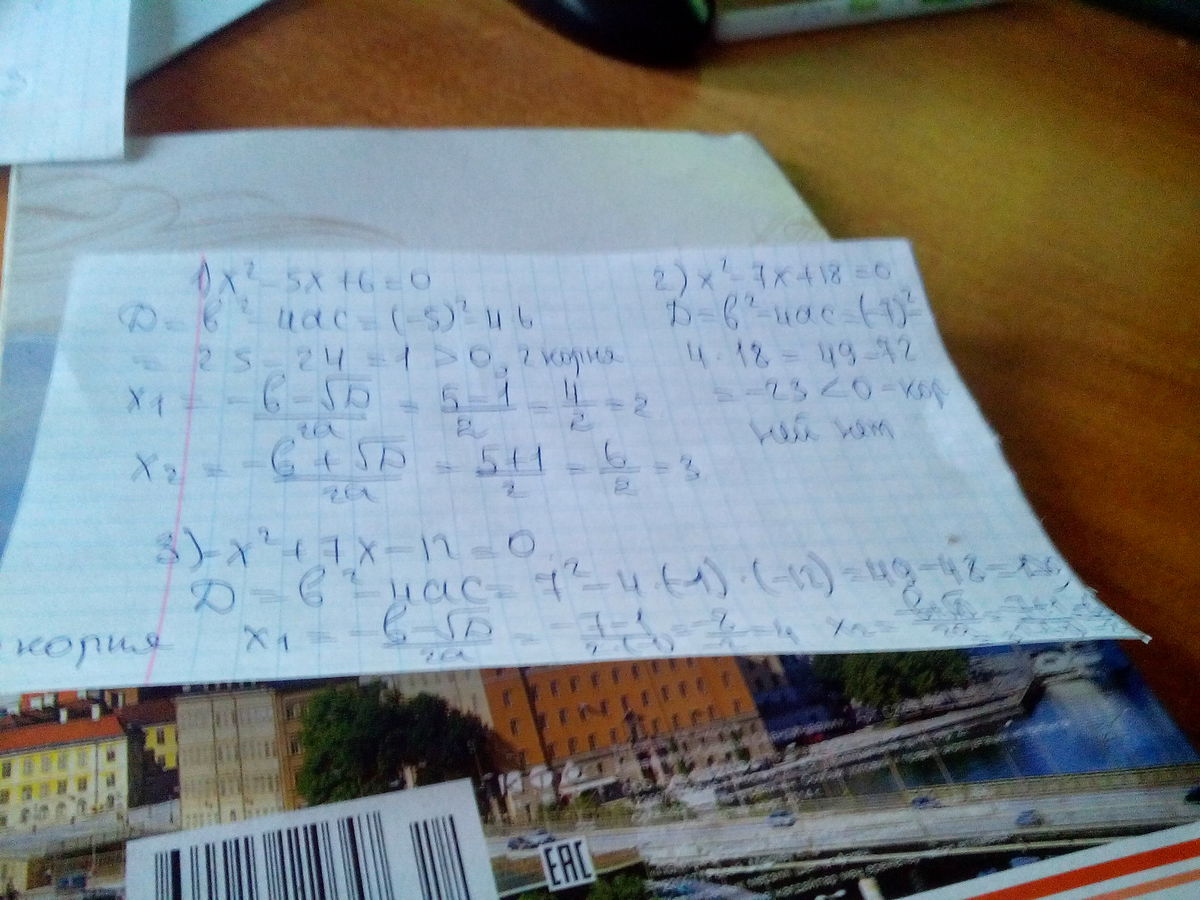 1) x² - 5x + 6 = 0
D = b² - 4ac = (-5)² - 4·6
= 25 - 24 = 1 > 0, 2 корня
x₁ = (-b - √D)/2a = (5-1)/2 = 4/2 = 2
x₂ = (-b + √D)/2a = (5+1)/2 = 6/2 = 3
2) x² - 7x + 18 = 0
D = b² - 4ac = (-7)² -
4 · 18 = 49 - 72
= -23 < 0 - кор
ней нет
3) -x² + 7x - 12 = 0
D = b² - 4ac = 7² - 4·(-1)·(-12) = 49 - 48 = 1
корня x₁ = (-b - √D)/2a = (-7-1)/2·(-1) = = 4 x₂ =
EAC